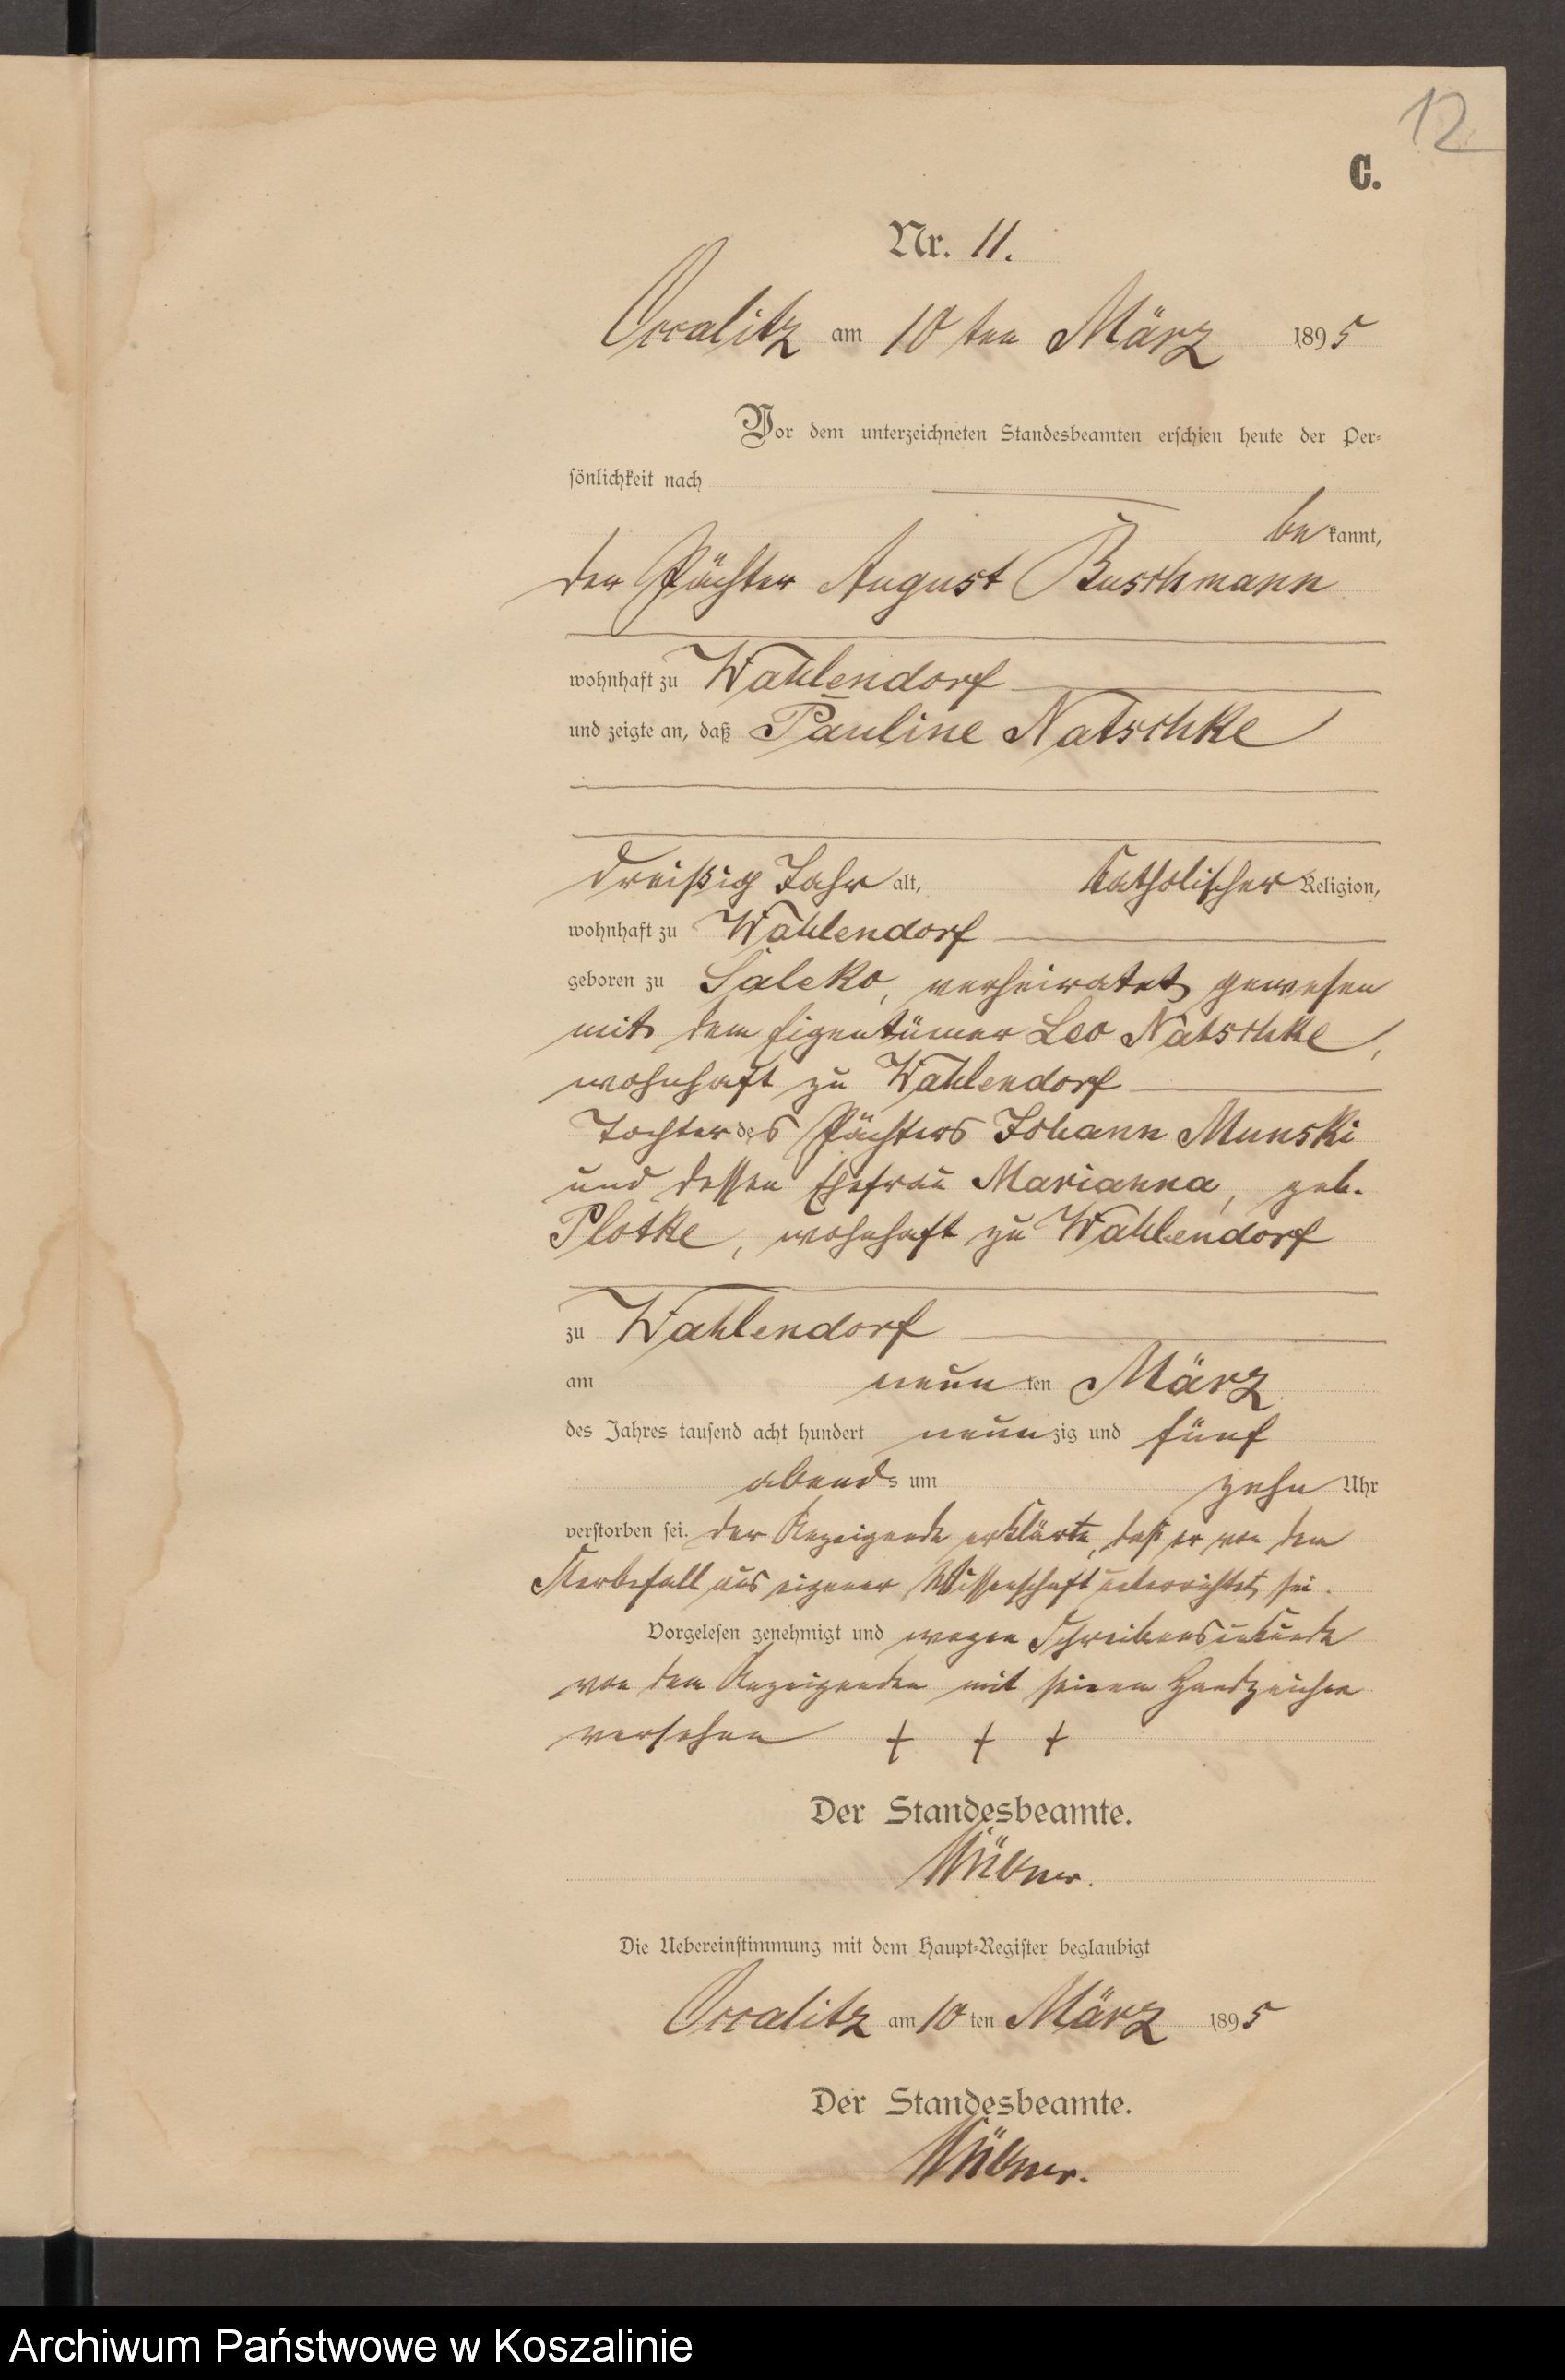 12
C.
Nr. 11.
Occalitz am 10 ten März 1895
Vor dem unterzeichneten Standesbeamten erschien heute der Per-
sönlichkeit nach
bekannt,
der Pächter August Buschmann
wohnhaft zu Wahlendorf
und zeigte an, daß Pauline Natschke
dreißig Jahr alt, katholischer Religion,
wohnhaft zu Wahlendorf
geboren zu Saleko, verheiratet gewesen
mit dem Eigentümer Leo Natschke,
wohnhaft zu Wahlendorf
Tochter des Pächters Johann Munski
und dessen Ehefrau Marianna, geb.
Plotke, wohnhaft zu Wahlendorf
zu Wahlendorf
am neunten März
des Jahres tausend acht hundert neunzig und fünf
abends um zehn Uhr
verstorben sei. Der Anzeigende erklärte, daß er von dem
Sterbefall aus eigener Wissenschaft unterrichtet sei.
Vorgelesen genehmigt und wegen Schreibensunkunde
von dem Anzeigenden mit seinem Handzeichen
versehen + + +
Der Standesbeamte.
Die Uebereinstimmung mit dem Haupt-Register beglaubigt
Occalitz am 10 ten März 1895
Der Standesbeamte.
Archiwum Państwowe w Koszalinie